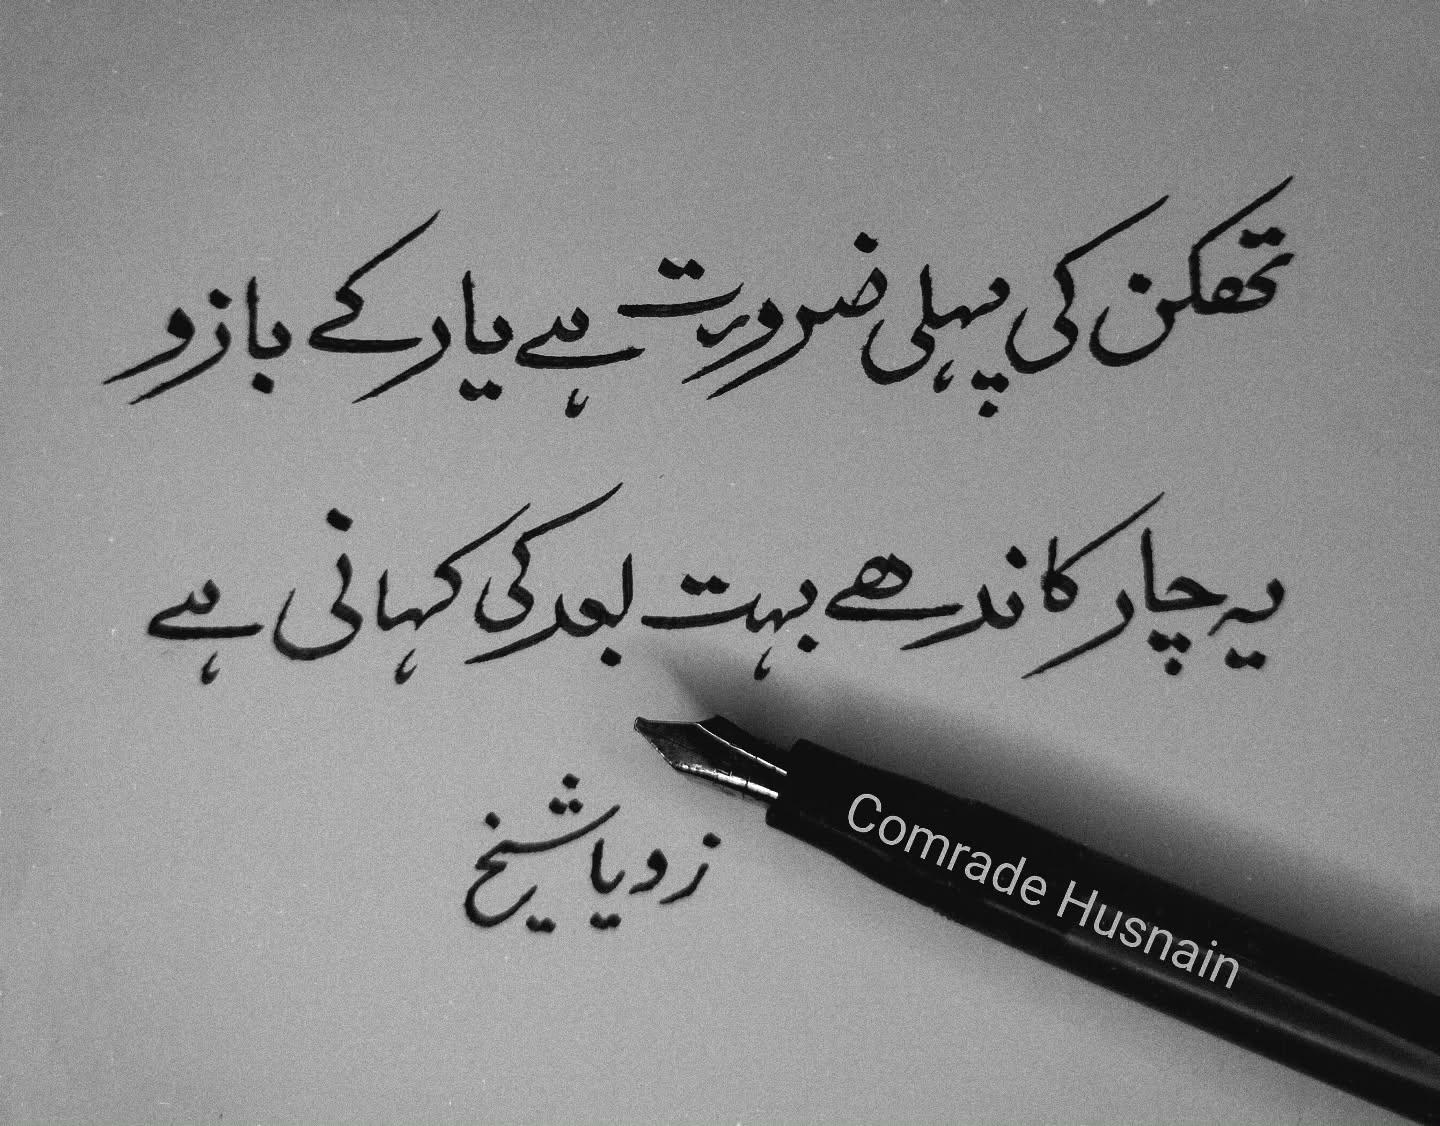 تھکن کی پہلی ضرورت ہے یار کے بازو
یہ چار کاندھے بہت بعد کی کہانی ہے
زویا شیخ
Comrade Husnain